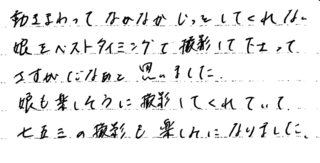 動きまわって なかなか じっとしてくれない
娘をベストタイミングで撮影して下さって
さすがだなあと 思いました。
娘も楽しそうに撮影してくれていて、
七五三の撮影も楽しみになりました。